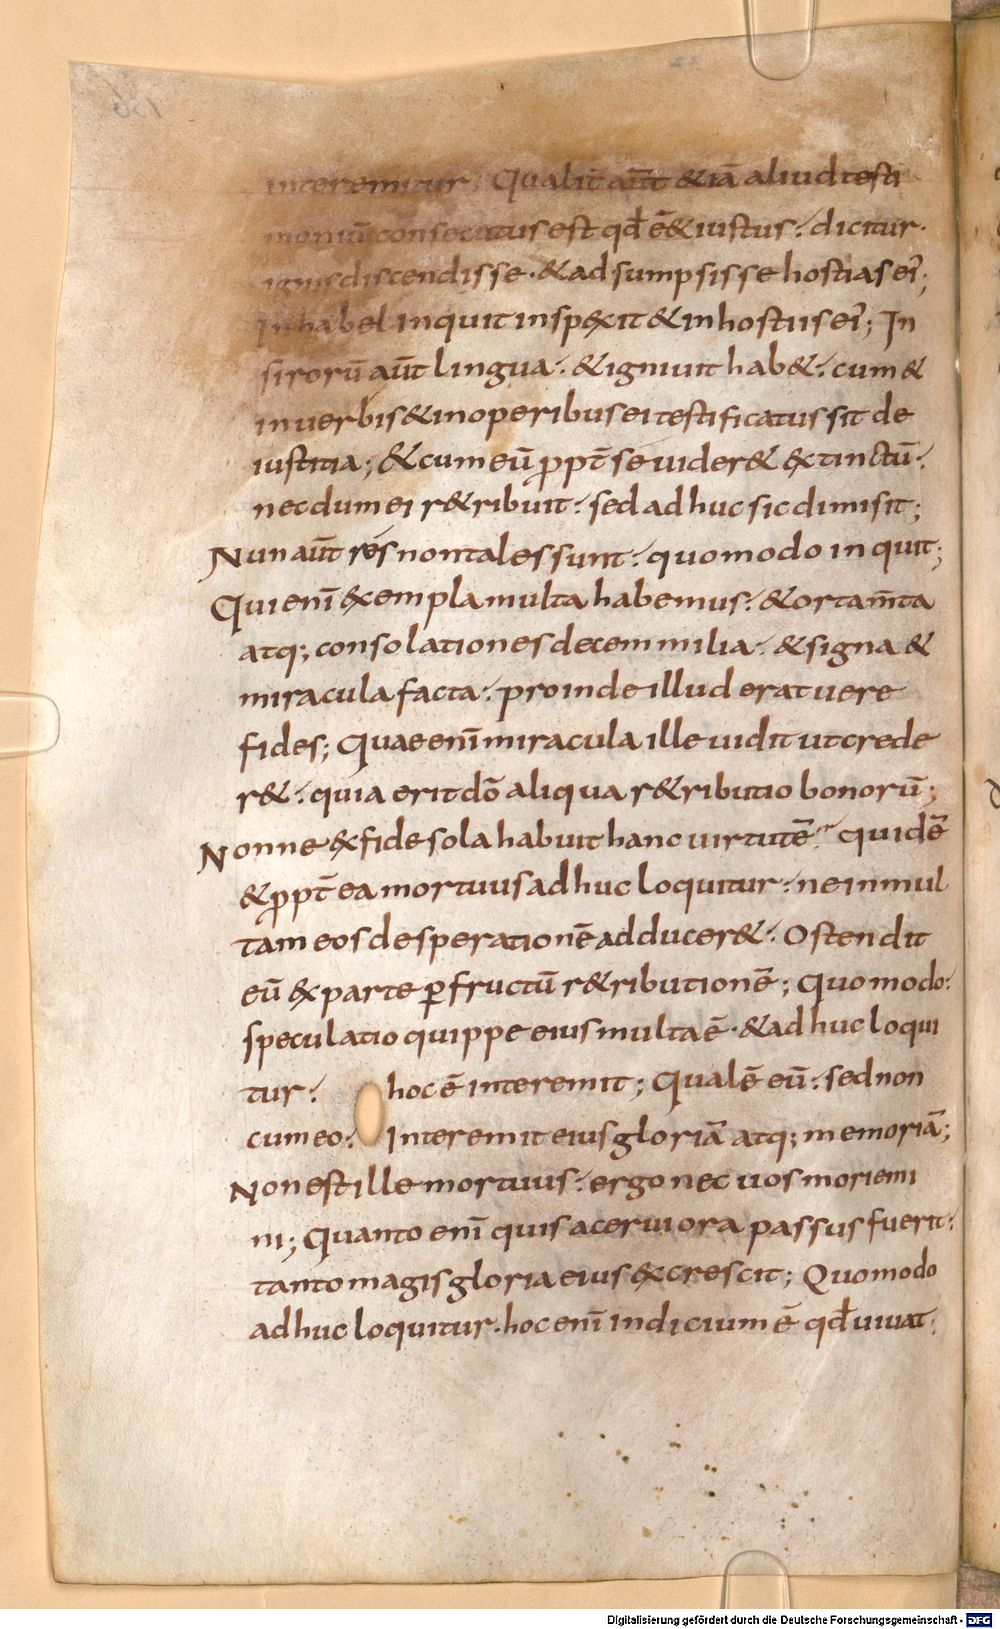 interemitur; Qualit̄ aūt &iā aliud testi
moniū consecutus est qđ ē & iustus:. dicitur.
ignis discendisse. & adsumpsisse hostias ei̅;
In habel inquit inspexit & in hostiis ei̅; In
sirorū aūt lingua:. & igniuit hab&:. cum &
in uerbis & in operibus ei testificatus sit de
iustitia; & cum eū ꝓpt̄ se uider& extinctū:.
necdum ei r&ribuit:. sed adhuc sic dimisit;
Nun aūt res non tales sunt:. quomodo inquit;
Qui enī exempla multa habemus:. & ortam̄ta
atq; consolationes decem milia:. & signa &
miracula facta:. proinde illud erat uere
fides; Quae enī miracula ille uidit ut crede
r&:. quia erit dō aliqua r&ributio bonorū;
Nonne ex fide sola habuit hanc uirtutē:. quid ē
& ꝓpt̄ ea mortuus adhuc loquitur:. ne in mul
tam eos desperationē adducer&:. Ostendit
eū ex parte ꝑfructū r&ributionē; Quomodo:.
speculatio quippe eius multa ē. & adhuc loqui
tur:. hoc ē interemit; Qualē eū:. sed non
cum eo:. Interemit eius gloriā atq; memoriā;
Non est ille mortuus:. ergo nec uos moriemi
ni; Quanto enī quis aceruiora passus fuerit:.
tanto magis gloria eius excrescit; Quomodo
adhuc loquitur. hoc enī indicium ē qđ uiuat;
Digitalisierung gefördert durch die Deutsche Forschungsgemeinschaft - DFG